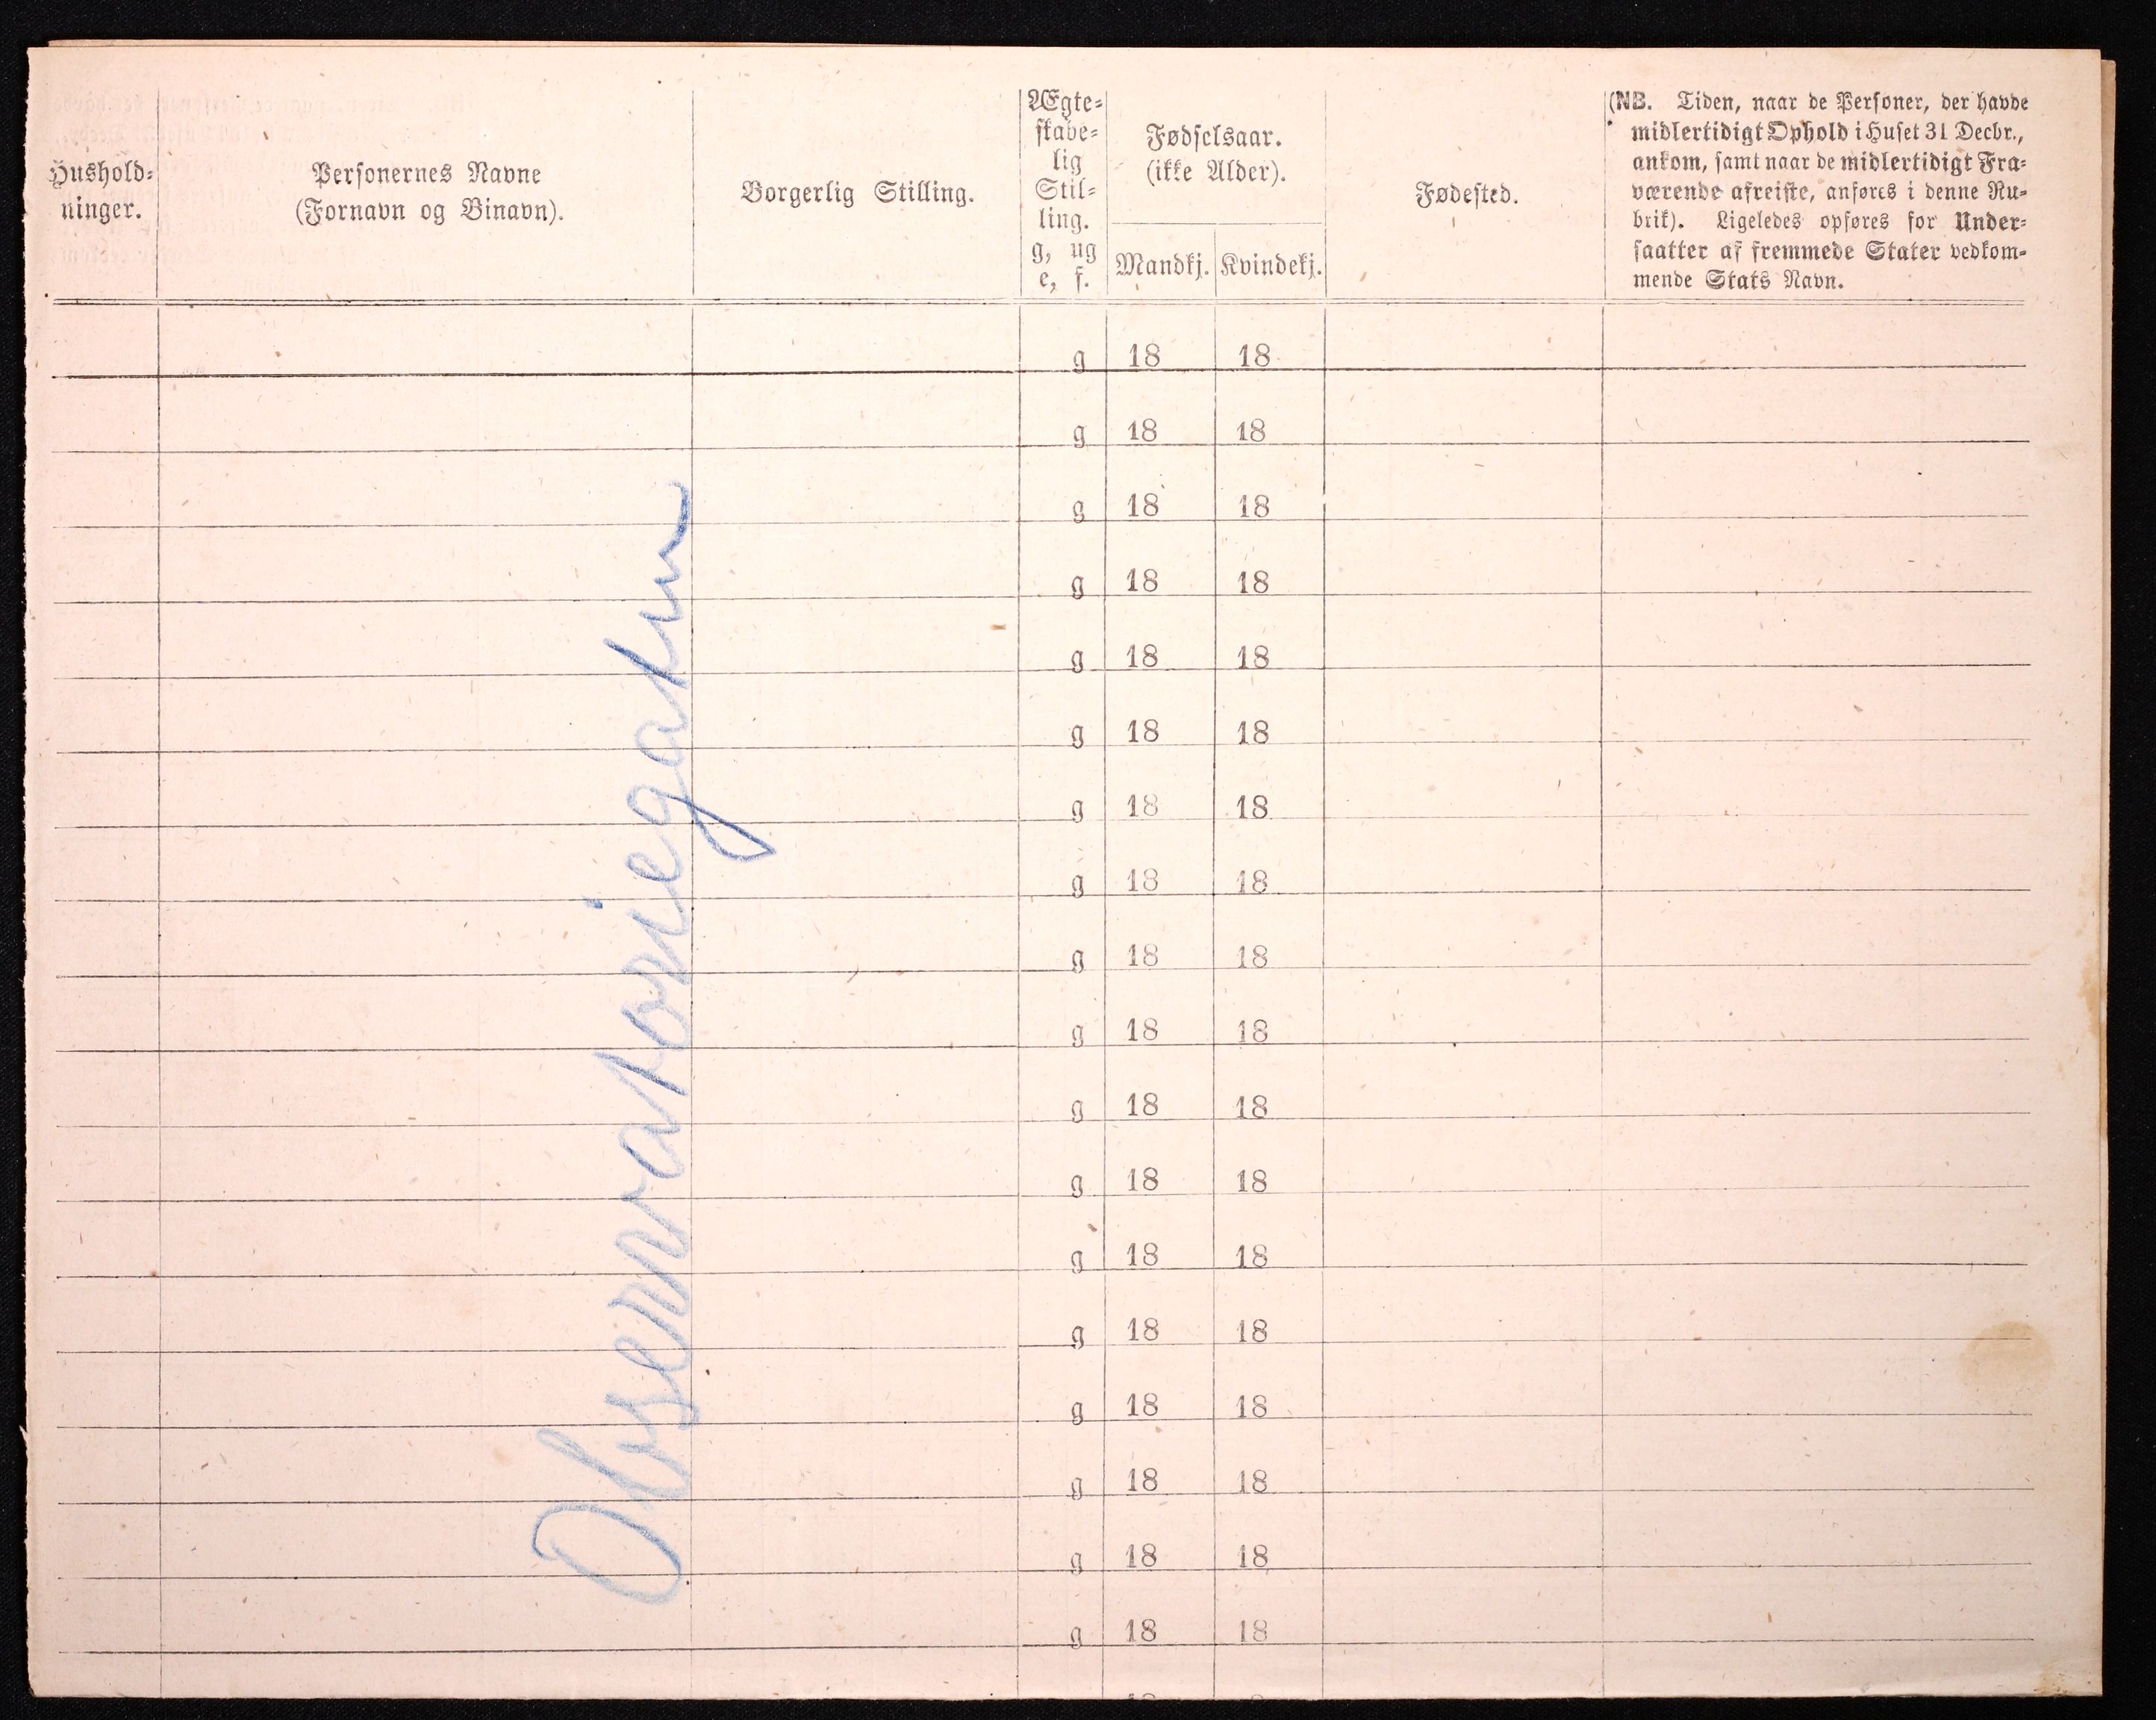 Hushold-
ninger.
Personernes Navne
(Fornavn og Binavn).
Borgerlig Stilling.
Ægte-
skabe-
lig
Stil-
ling.
g, ug
e, f.
Fødselsaar.
(ikke Alder).
Mandkj. Kvindekj.
Fødested.
(NB. Tiden, naar de Personer, der havde
midlertidigt Ophold i Huset 31 Decbr.,
ankom, samt naar de midlertidigt Fra-
værende afreiste, anføres i denne Ru-
brik). Ligeledes opføres for Under-
saatter af fremmede Stater vedkom-
mende Stats Navn.
g 18 18
g 18 18
g 18 18
g 18 18
g 18 18
g 18 18
g 18 18
g 18 18
g 18 18
g 18 18
g 18 18
g 18 18
g 18 18
g 18 18
g 18 18
g 18 18
g 18 18
g 18 18
Observatoriegaten